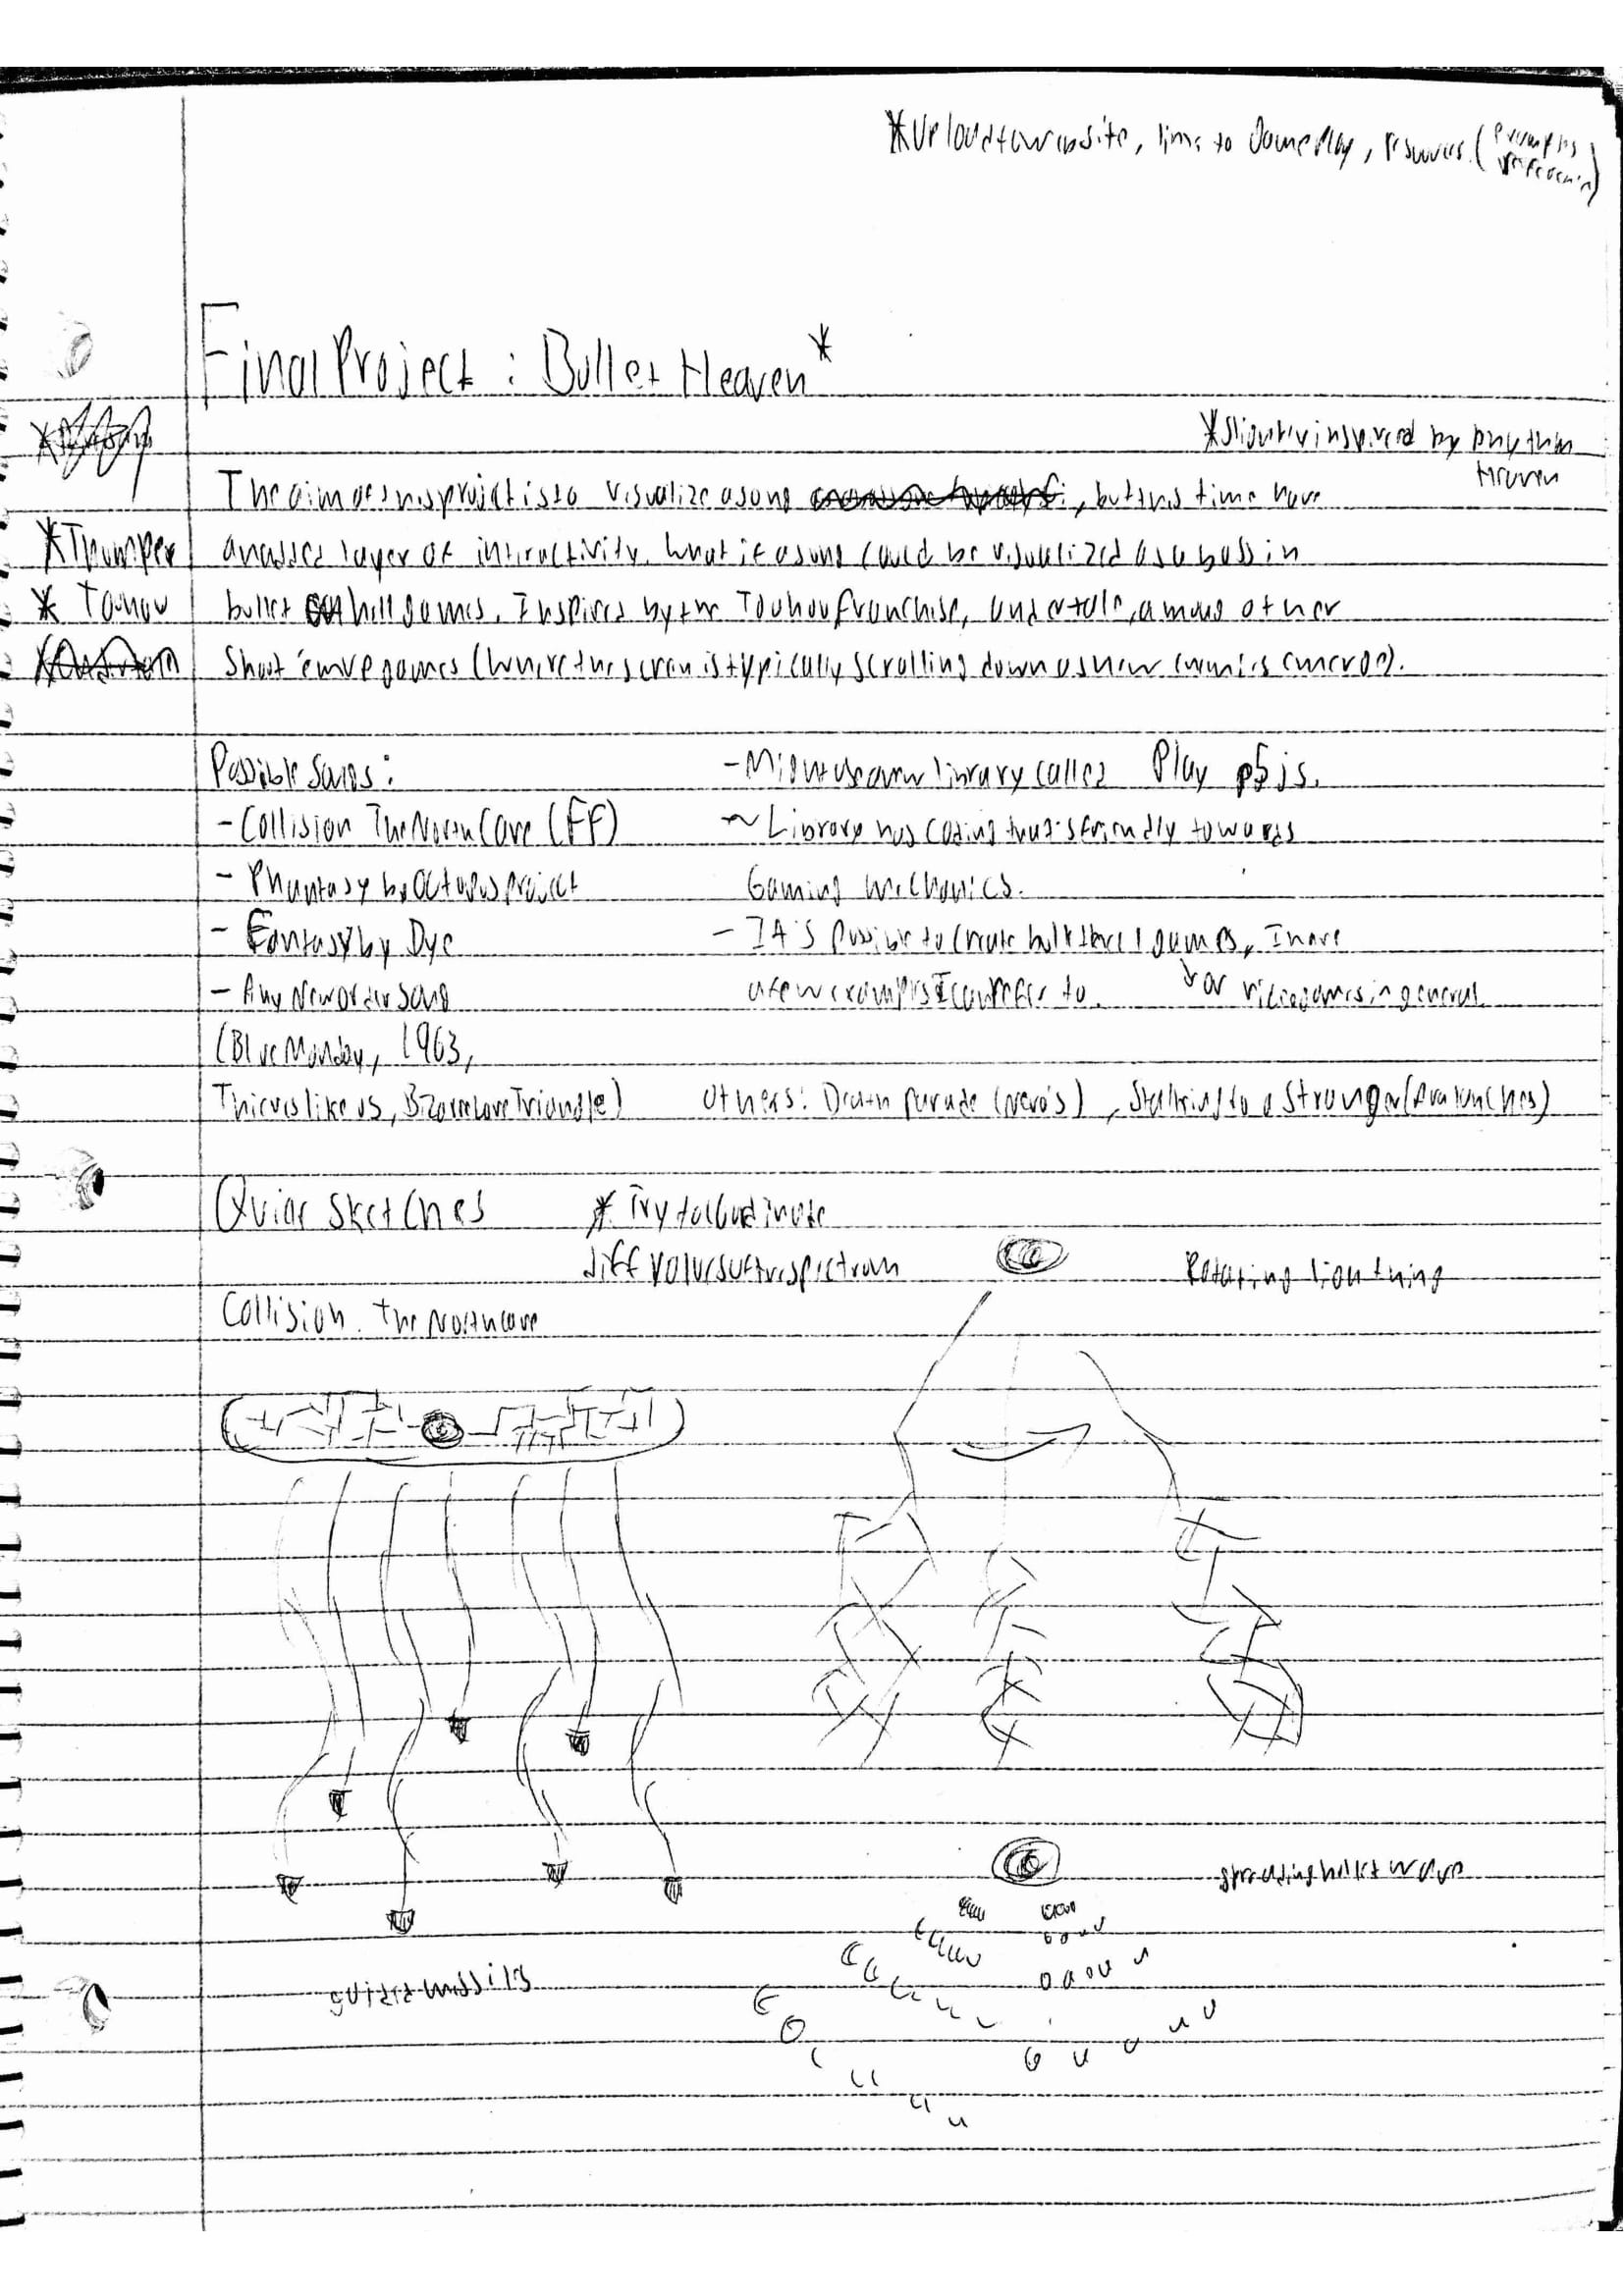 *Upload to website, link to Gameplay, resources (examples
reference)
Final Project : Bullet Heaven*
*Slightly inspired by rhythm
Heaven
The aim of this project is to visualize a song , but this time have
*Thumper
an added layer of interactivity. What if a song could be visualized as a boss in
* Touhou
bullet hell games. Inspired by the Touhou franchise, undertale, among other
Shoot 'em up games (where the screen is typically scrolling down as new enemies emerge).
Possible Songs:
- Collision The North Cave (FF)
- Phantasy by Octopus project
- Fantasy by Dye
- Any New Order song
(Blue Monday, 1963,
Thieves like us, Bizarre Love Triangle)
- Might use a new library called Play p5js.
~ Library has coding that's friendly towards
Gaming mechanics.
- It's possible to create bullet hell games, I have
or videogames in general
a few examples I can refer to.
Others: Death parade (Vero's), Stalking to a Stranger (Avalanches)
Quick Sketches
* Try to coordinate
diff values of the spectrum
Collision. The North cave
Rotating lightning
guided missils
Spreading bullet wave